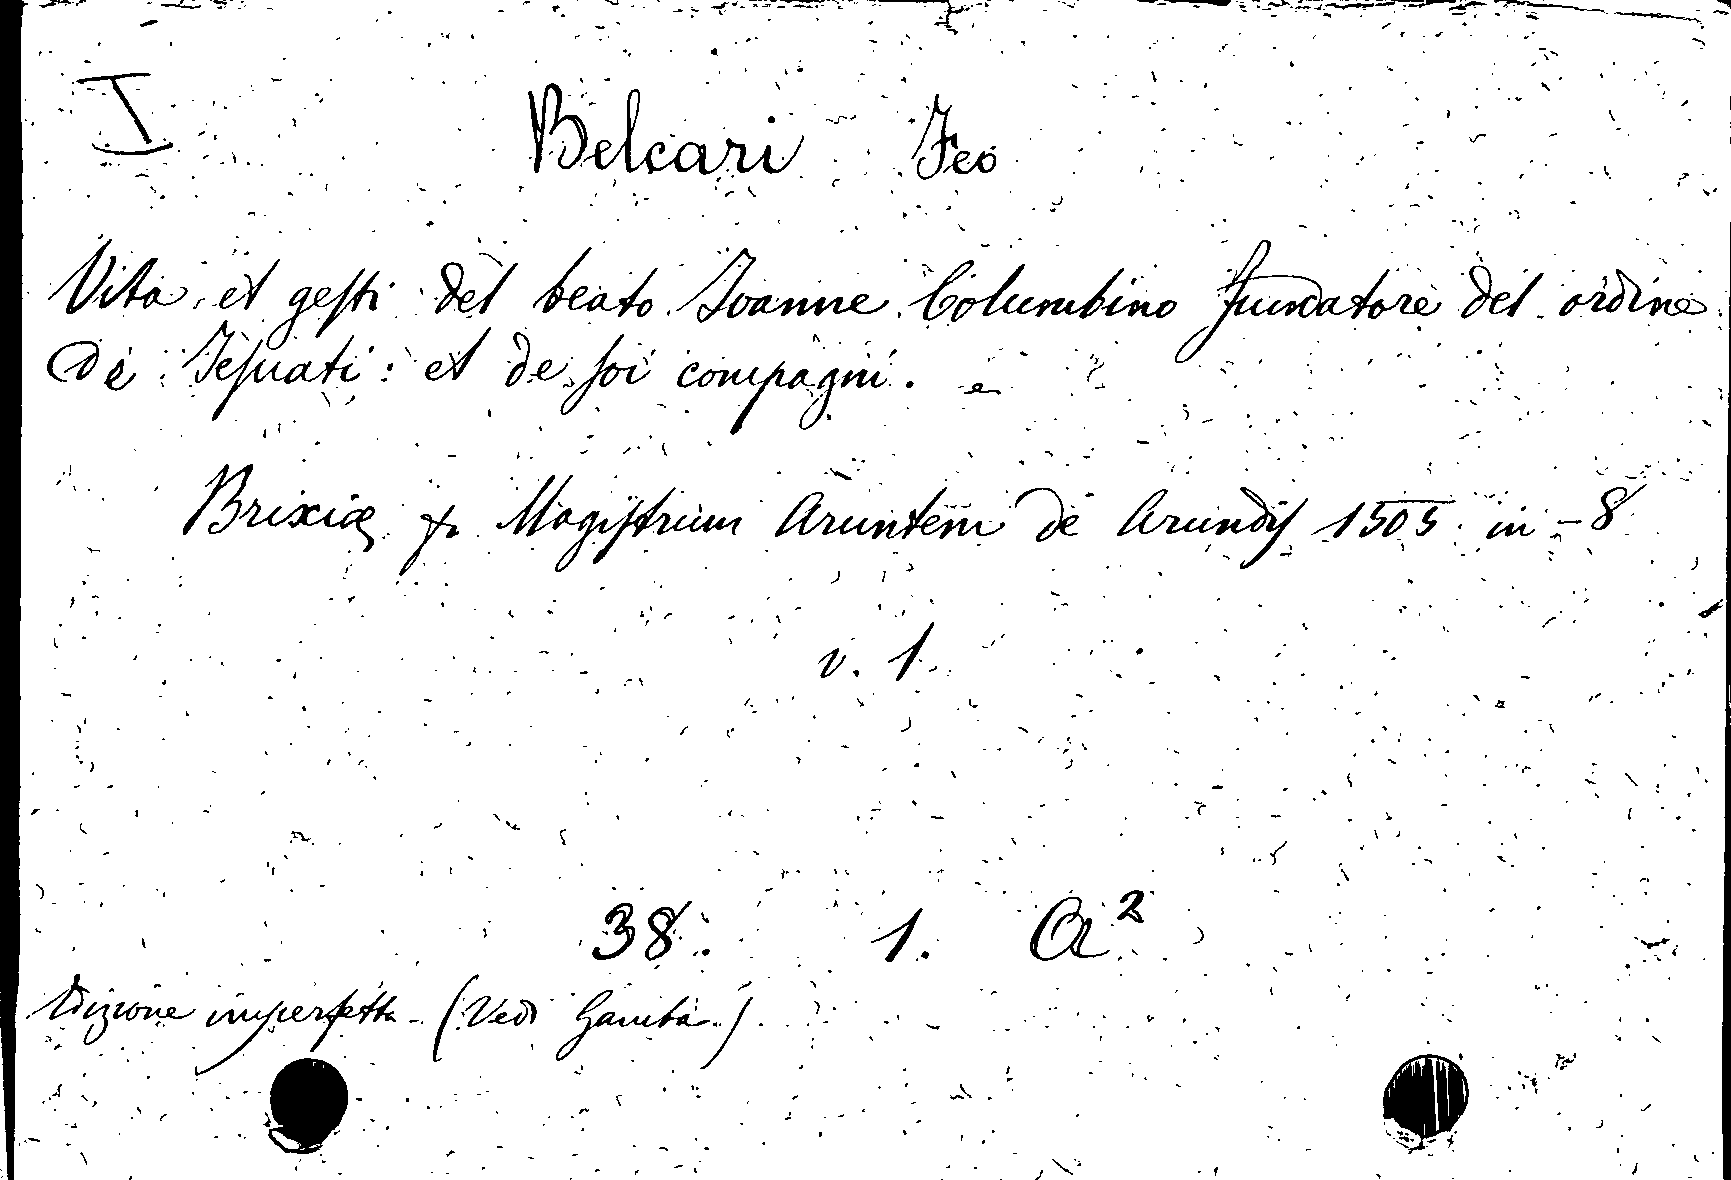 I
Belcari Feo
Vita et gesti del beato Ioanne Columbino fundatore del ordine
de Iesuati: et de soi compagni.
Brixiæ p. Magistrum Aruntem de Arundis 1505 in-8
v. 1.
38. 1. A²
Edizione imperfetta - (Vedi Gamba.)